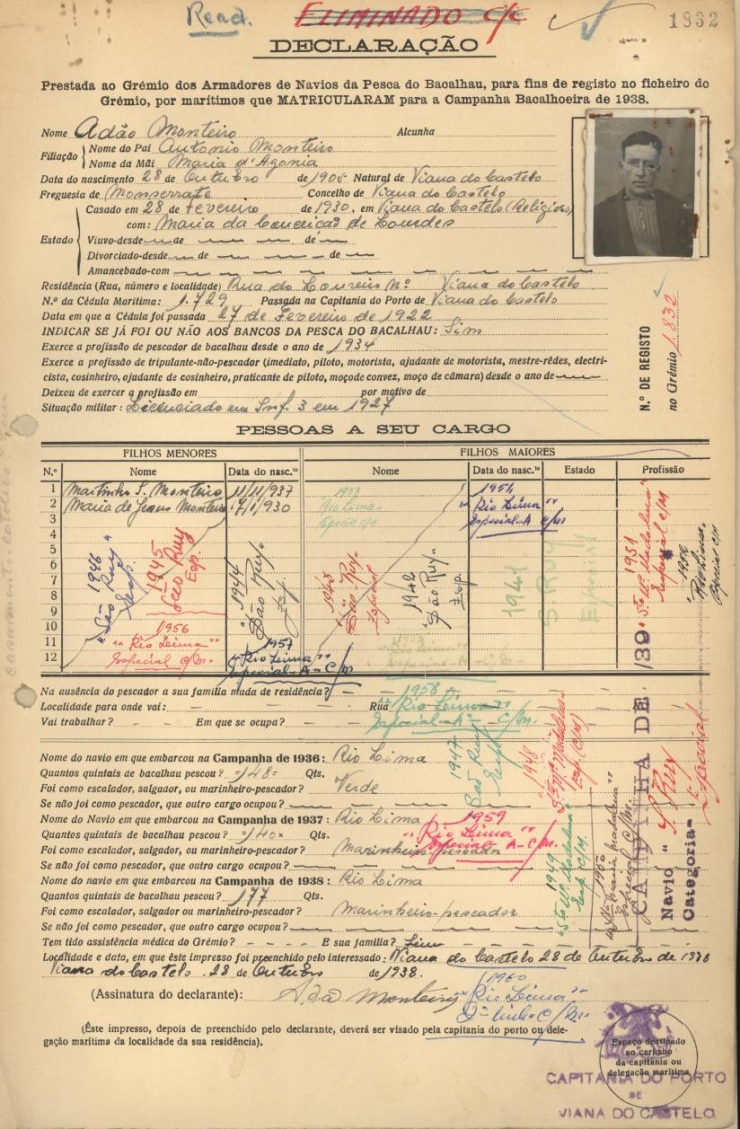 Read.
ELIMINADO c/c
1832
DECLARAÇÃO
Prestada ao Grémio dos Armadores de Navios da Pesca do Bacalhau, para fins de registo no ficheiro do
Grémio, por marítimos que MATRICULARAM para a Campanha Bacalhoeira de 1938.
Nome Adão Monteiro Alcunha
Filiação
Nome do Pai António Monteiro
Nome da Mãi Maria d'Agonia
Data do nascimento 28 de Outubro de 1905 Natural de Viana do Castelo
Freguesia de Monserrate Concelho de Viana do Castelo
Estado
Casado em 28 de Fevereiro de 1930, em Viana do Castelo (Religioso)
com: Maria da Conceição de Lourdes
Viuvo-desde — de — de —
Divorciado-desde — de — de —
Amancebado-com —
Residência (Rua, número e localidade) Rua do Loureiro Nº Viana do Castelo
N.º da Cédula Marítima: 1.729 Passada na Capitania do Porto de Viana do Castelo
Data em que a Cédula foi passada 27 de Fevereiro de 1922
INDICAR SE JÁ FOI OU NÃO AOS BANCOS DA PESCA DO BACALHAU: Sim
Exerce a profissão de pescador de bacalhau desde o ano de 1934
Exerce a profissão de tripulante-não-pescador (imediato, piloto, motorista, ajudante de motorista, mestre-rêdes, electri-
cista, cosinheiro, ajudante de cosinheiro, praticante de piloto, moço de convez, moço de câmara) desde o ano de —
Deixou de exercer a profissão em por motivo de
Situação militar: Licenciado em Inf. 3 em 1927
N.º DE REGISTO
no Grémio 1832
PESSOAS A SEU CARGO
FILHOS MENORES FILHOS MAIORES
N.º Nome Data do nasc.to Nome Data do nasc.to Estado Profissão
1 Martinho S. Monteiro 11/11/937
2 Maria de Jesus Monteiro 930
3
4
5
6
7
8
9
10
11
12
1946
"São Ruy"
Esp.
1945
São Ruy
Esp.
1944
São Ruy
Esp.
1943
São Ruy
Especial
1942
São Ruy
Esp.
1941
S. Ruy
Especial
1953
Rio Lima
1954
"Rio Lima"
Especial-A C/M
1951
"Stª Mª Madalena"
Especial C/M
1956
"Rio Lima"
Especial C/M.
1957
"Rio Lima"
Especial-A-C/M
Na ausência do pescador a sua familia muda de residência?
Localidade para onde vai: Rua
Vai trabalhar? Em que se ocupa?
1958
"Rio Lima"
Especial-A- C/M.
Nome do navio em que embarcou na Campanha de 1936: Rio Lima
Quantos quintais de bacalhau pescou? 148 Qts.
Foi como escalador, salgador ou marinheiro-pescador? Verde
Se não foi como pescador, que outro cargo ocupou? —
Nome do Navio em que embarcou na Campanha de 1937: Rio Lima
Quantos quintais de bacalhau pescou? 140 Qts.
Foi como escalador, salgador, ou marinheiro-pescador? Marinheiro-pescador
Se não foi como pescador, que outro cargo ocupou? —
Nome do navio em que embarcou na Campanha de 1938: Rio Lima
Quantos quintais de bacalhau pescou? 177 Qts.
Foi como escalador, salgador ou marinheiro-pescador? Marinheiro-pescador
Se não foi como pescador, que outro cargo ocupou? —
1947
São Ruy
Esp.
1948
Stª Mª Madalena
Esp. C/M
1959
"Rio Lima"
Especial A-C/M.
1949
Stª Mª Madalena
Esp. C/M.
1950
Especial C/M.
CAMPANHA DE 1939
Navio "S. Ruy
Categoria- Especial
Tem tido assistência médica do Grémio? - - - - E sua familia? Sim
Localidade e data, em que êste impresso foi preenchido pelo interessado: Viana do Castelo 28 de Outubro de 1938
Viana do Castelo. 28 de Outubro de 1938.
(Assinatura do declarante): Adão Monteiro
1960
"Rio Lima"
2ª linha C/M
(Êste impresso, depois de preenchido pelo declarante, deverá ser visado pela capitania do porto ou dele-
gação marítima da localidade da sua residência).
Espaço destinado
ao carimbo
da capitania ou
delegação marítima
CAPITANIA DO PORTO
DE
VIANA DO CASTELO
casamento-católico